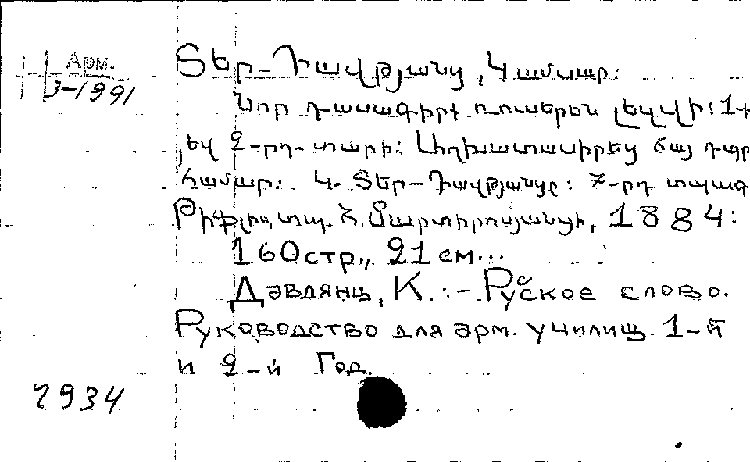 Арм.
3-1991
Տեր-Դավթյանց, Կամսար:
Նոր դասագիրք ռուսերեն լեզվի: 1-
եվ 2-րդ տարի: Աշխատասիրեց հայ դպր
համար: Կ. Տեր-Դավթյանցը: 7-րդ տպագ
Թիֆլիս, տպ. Հ. Մարտիրոսյանցի, 1884:
160 стр., 21 см...
Давлянц, К. :- Русское слово.
Руководство для арм. училищ. 1-й
и 2-й Год.
2934